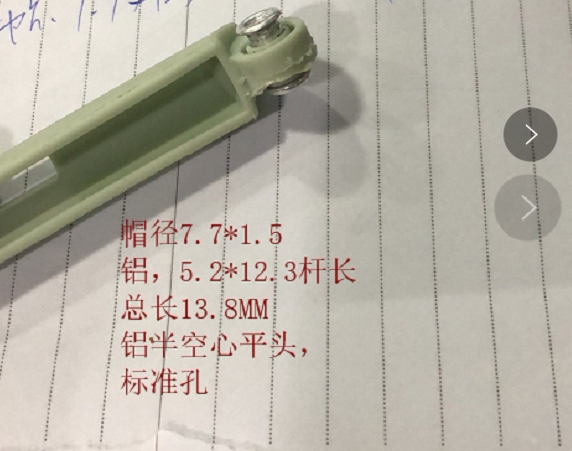 帽径7.7*1.5
铝，5.2*12.3杆长
总长13.8MM
铝半空心平头，
标准孔